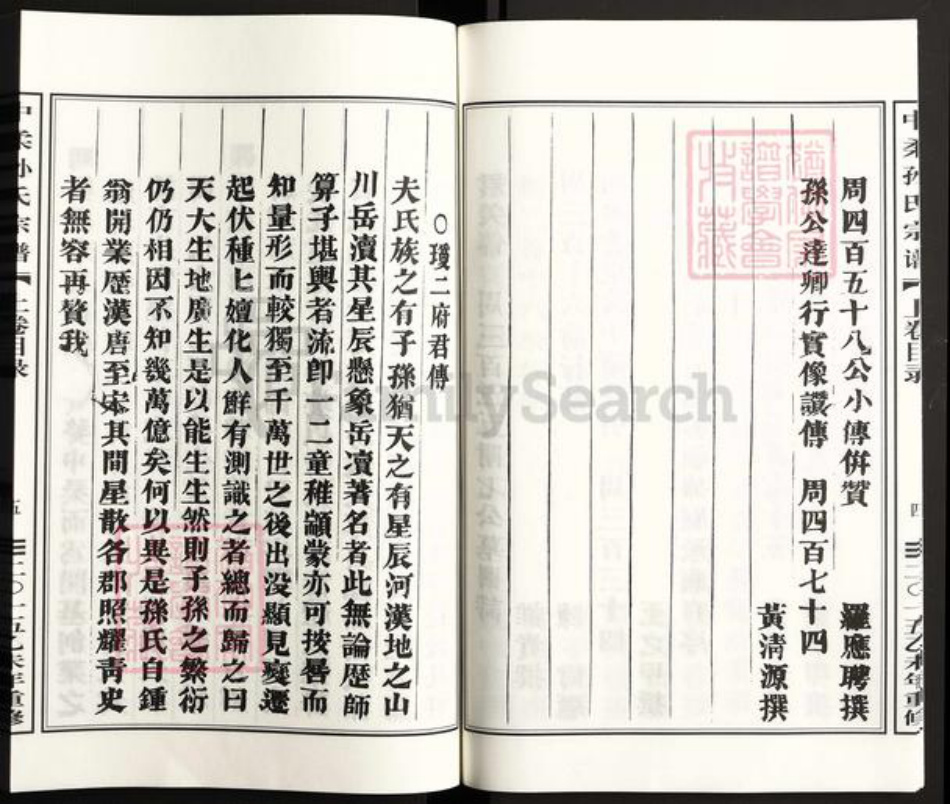 周四百五十八公小傳併贊 羅應聘撰
孫公達卿行實像讚傳 周四百七十四
黃清源撰
○瓊二府君傳
夫氏族之有子孫猶天之有星辰河漢地之山
川岳瀆其星辰懸象岳凟著名者此無論歷師
算子堪輿者流卽一二童稚顓蒙亦可按晷而
知量形而較獨至千萬世之後出没顯見變遷
起伏種七嬗化人鮮有測識之者總而歸之曰
天大生地廣生是以能生生然則子孫之繁衍
仍仍相因不知幾萬億矣何以異是孫氏自鍾
翁開業歷漢唐至宋其間星散各郡照耀靑史
者無容再贊我
中柔孙氏宗谱
上卷目录
四
二〇一五乙未年重修
中柔孙氏宗譜
上卷目录
五
二〇一五乙未年重修
FamilySearch